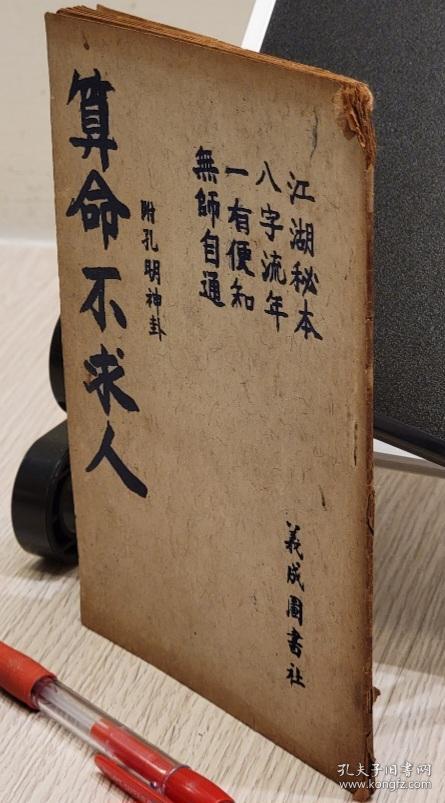 江湖秘本
八字流年
一有便知
無師自通
附孔明神卦
算命不求人
義成圖書社
孔夫子旧书网
www.kongfz.com